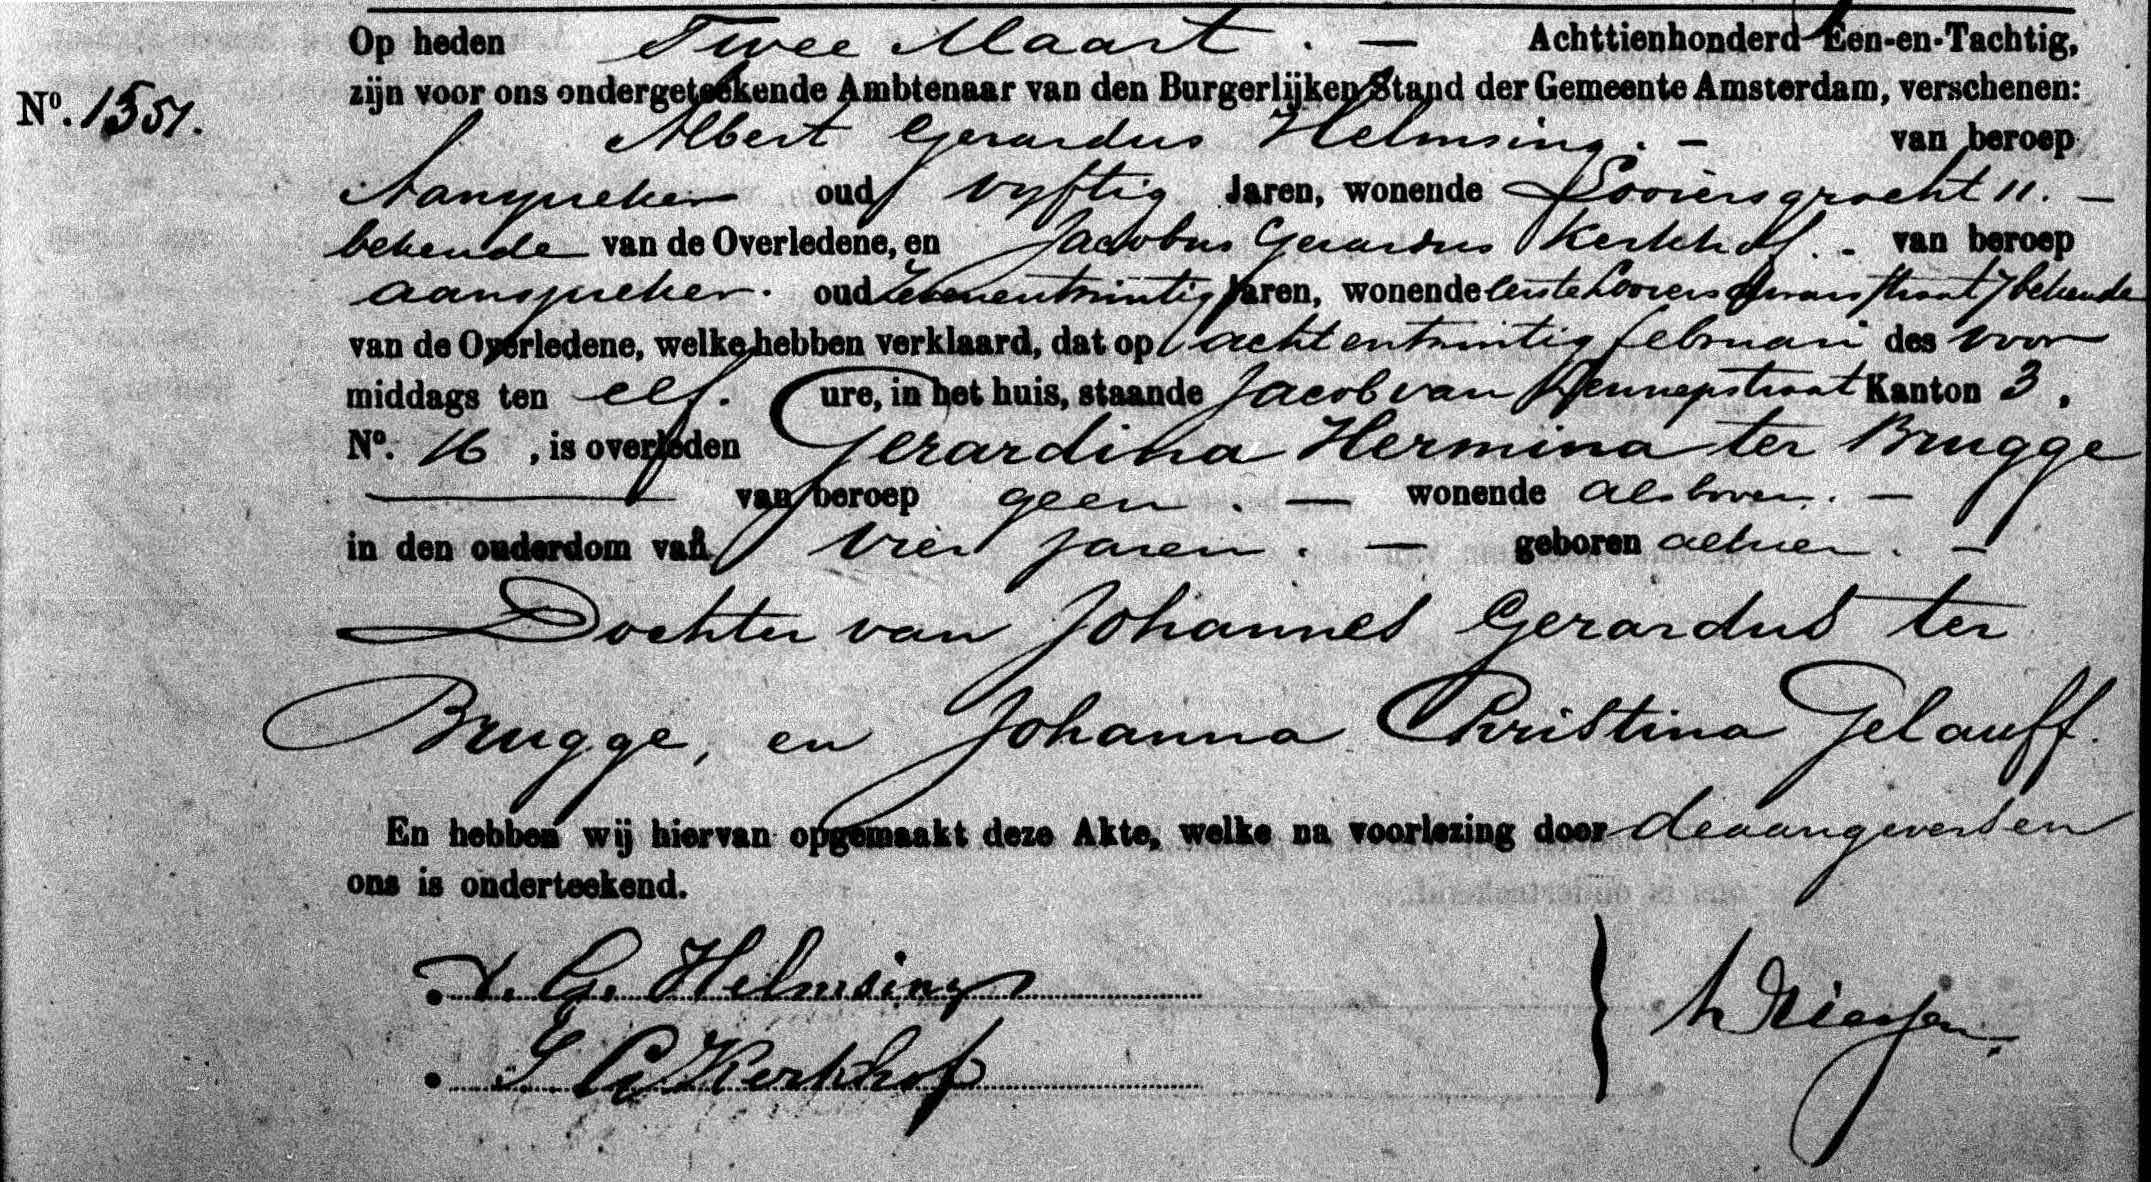 Op heden Twee Maart. — Achttienhonderd Een-en-Tachtig,
zijn voor ons ondergeteekende Ambtenaar van den Burgerlijken Stand der Gemeente Amsterdam, verschenen:
No. 1351.
Albert Gerardus Helmsing. — van beroep
Aanspreker oud vyftig Jaren, wonende Looiersgracht 11. —
bekende van de Overledene, en Jacobus Gerardus Kerkhof. - van beroep
aanspreker. oud zevenentwintig Jaren, wonende eerste Looiersdwarsstraat 7 bekende
van de Overledene, welke hebben verklaard, dat op achtentwintig februari des voor
middags ten elf. ure, in het huis, staande Jacob van Lennepstraat Kanton 3,
No. 16, is overleden Gerardina Hermina ter Brugge
— van beroep geen. — wonende als boven. —
in den ouderdom van vier jaren. — geboren alhier. —
Dochter van Johannes Gerardus ter
Brugge, en Johanna Christina Gelauff.
En hebben wij hiervan opgemaakt deze Akte, welke na voorlezing door de aangevers en
ons is onderteekend.
A. G. Helmsing
J G Kerkhof